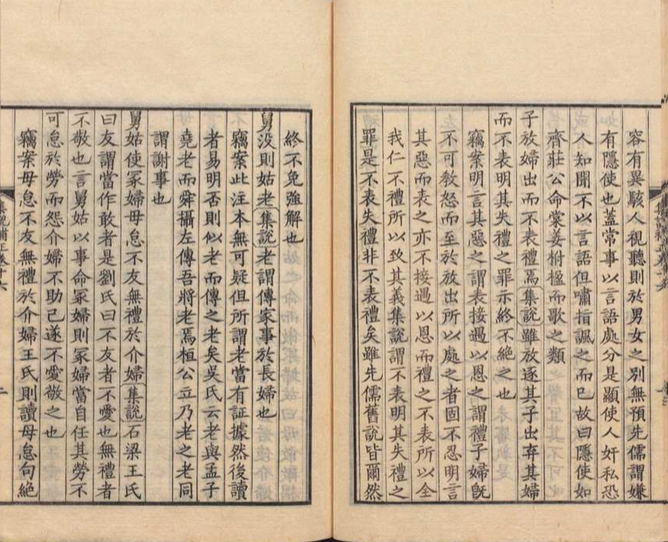 容有異駭人視聽則於男女之別無預先儒謂嫌
有隱使也蓋常事以言語處分是顯使人奸私恐
人知聞不以言語但嘯指諷之而已故曰隱使如
齊莊公命棠姜拊楹而歌之類
子放婦出而不表禮焉集說雖放逐其子出弃其婦
而不表明其失禮之罪示終不絶之也
竊案明言其惡之謂表接過以恩之謂禮子婦旣
不可敎怒而至於放出所以處之者固不忍明言
其惡而表之亦不接過以恩而禮之不表所以全
我仁不禮所以致其義集說謂不表明其失禮之
罪是不表失禮非不表禮矣雖先儒舊說皆爾然
終不免強解也
舅没則姑老集說老謂傳家事於長婦也
竊案此注本無可疑但所謂老當有証據然後讀
者易明否則似老而傳之老矣吳氏云老與孟子
堯老而舜攝左傳吾將老焉桓公立乃老之老同
謂謝事也
舅姑使冢婦毋怠不友無禮於介婦集說石梁王氏
曰友謂當作敢者是劉氏曰不友者不愛也無禮者
不敬也言舅姑以事命冢婦則冢婦當自任其勞不
可怠於勞而怨介婦不助己遂不愛敬之也
竊案毋怠不友無禮於介婦王氏則讀毋怠句絶